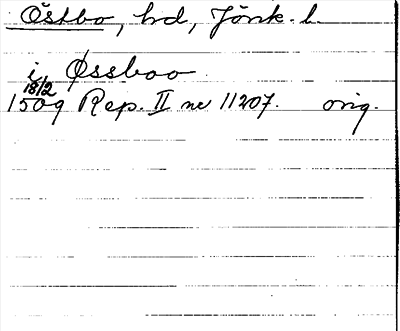 Östbo, hd, Jönk. l.
i Øssboo
18/2
1509 Rep. II nr 11207. orig.